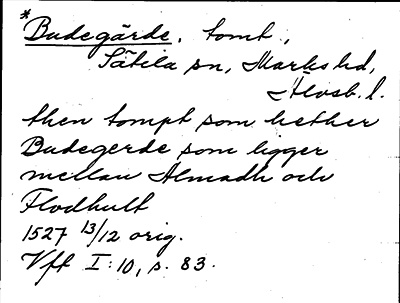 *Budegärde, tomt,
Sätila sn, Marks hd,
Älvsb. l.
then tompt som hether
Budegerde som ligger
mellan Almadh och
Flodhult
1527 13/12 orig.
Vft I:10, s. 83.